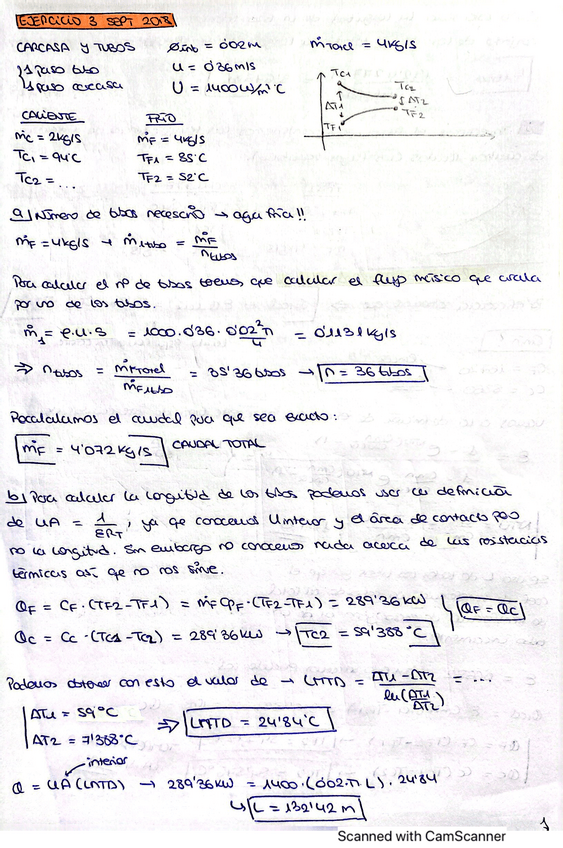 EJERCICIO 3 SEPT 2018
CARCASA Y TUBOS Øint = 0'02m ṁTotal = 4kg/s
1 paso tubo u = 0'36m/s
1 paso carcasa U = 1400W/m²°C
TC1
TC2
ΔT1
ΔT2
TF1
TF2
CALIENTE FRÍO
ṁC = 2kg/s ṁF = 4kg/s
TC1 = 94°C TF1 = 35°C
TC2 = ... TF2 = 52°C
a) Número de tubos necesario → agua fría!!
ṁF = 4kg/s → ṁ1tubo = ṁF / ntubos
Para calcular el nº de tubos tenemos que calcular el flujo másico que circula
por uno de los tubos.
ṁ1 = ρ.u.S = 1000.0'36. 0'02²π / 4 = 0'1131kg/s
⇒ ntubos = ṁTotal / ṁF1tubo = 35'36 tubos → n = 36 tubos
Recalculamos el caudal para que sea exacto:
ṁF = 4'072 kg/s CAUDAL TOTAL
b) Para calcular la longitud de los tubos podemos usar la definición
de UA = 1 / ΣRT, ya que conocemos Uinterior y el área de contacto pero
no la longitud. Sin embargo no conocemos nada acerca de las resistencias
térmicas así que no nos sirve.
QF = CF.(TF2-TF1) = ṁF cpF.(TF2-TF1) = 289'36 kW
QF = QC
QC = CC.(TC1-TC2) = 289'36kW → TC2 = 59'388°C
Podemos obtener con esto el valor de → LMTD = ΔT1-ΔT2 / ln(ΔT1/ΔT2) = ...
ΔT1 = 59°C
⇒ LMTD = 24'84°C
ΔT2 = 7'388°C
interior
Q = UA(LMTD) → 289'36kW = 1400.(0'02.π.L).24'84
↳ L = 132'42 m
1
Scanned with CamScanner